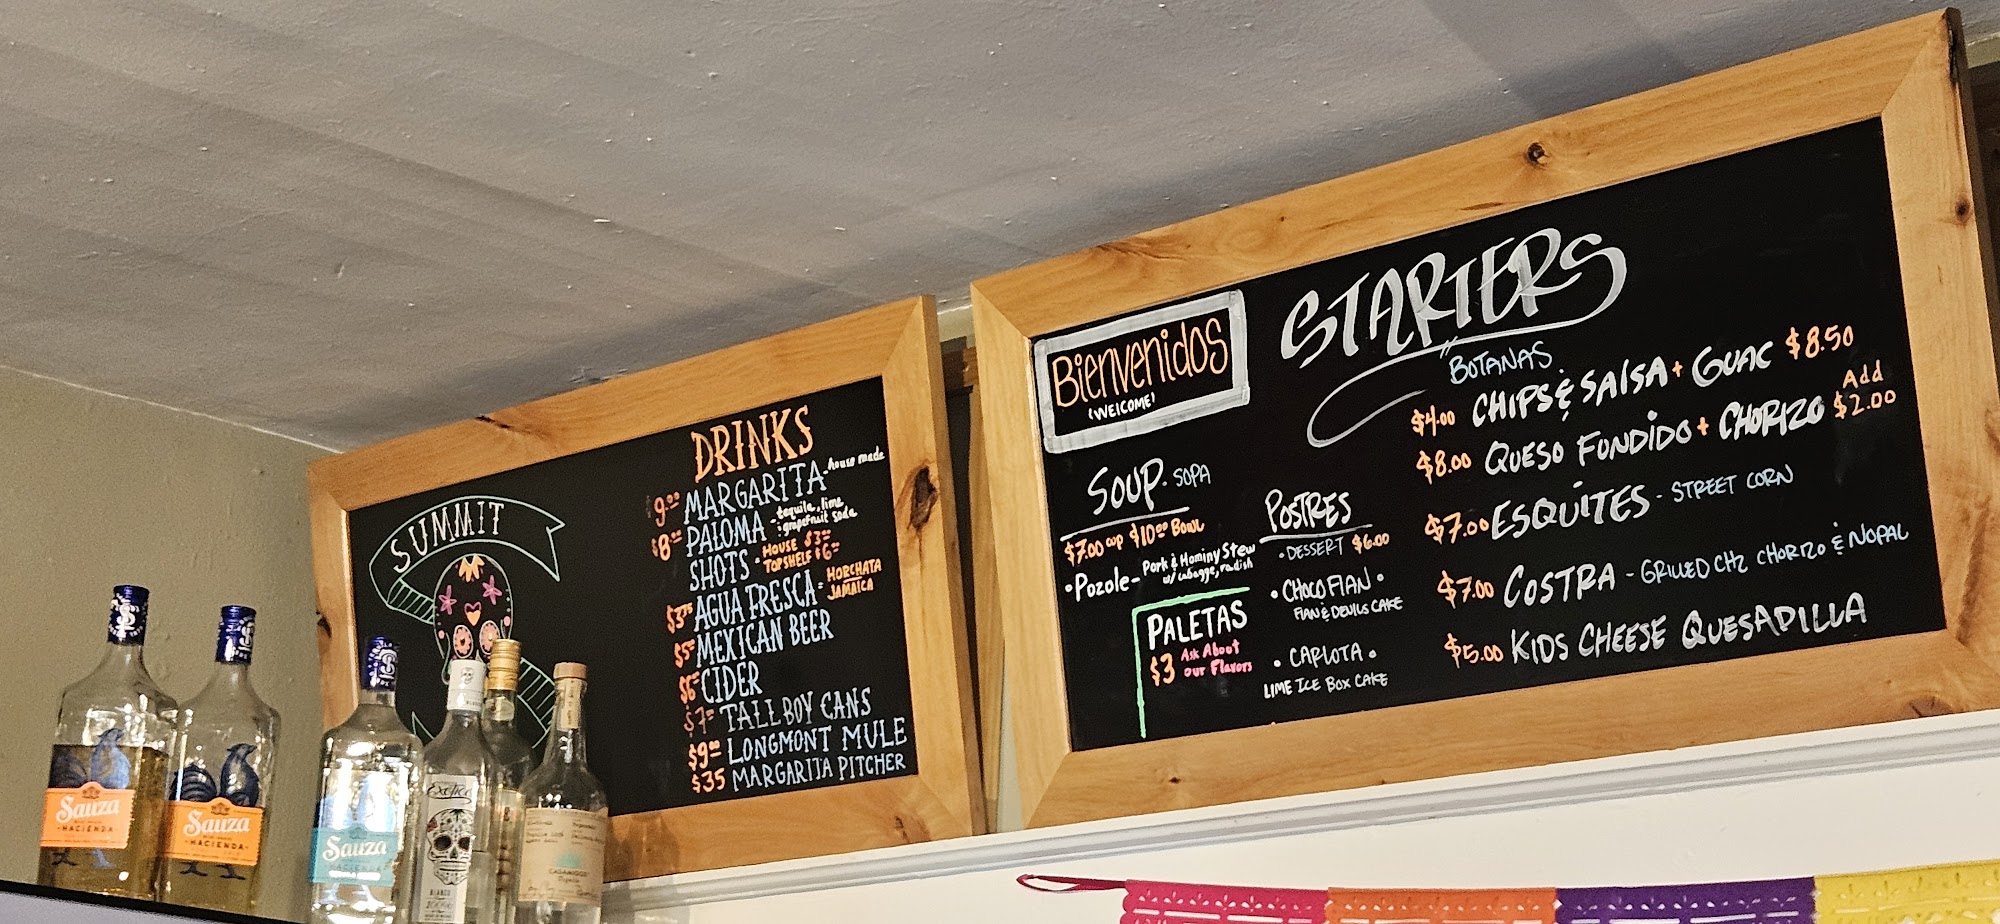 SUMMIT
DRINKS
$9.00 MARGARITA - house made
$8.00 PALOMA - tequila, lime
& grapefruit soda
SHOTS - HOUSE $3.00
• TOP SHELF $6.00
$3.00 AGUA FRESCA - HORCHATA
JAMAICA
$5.00 MEXICAN BEER
$6.00 CIDER
$7.00 TALLBOY CANS
$9.00 LONGMONT MULE
$35 MARGARITA PITCHER
Bienvenidos
(WELCOME!
STARTERS
BOTANAS
$4.00 CHIPS & SALSA + GUAC $8.50
$8.00 QUESO FUNDIDO + CHORIZO Add $2.00
$7.00 ESQUITES - STREET CORN
$7.00 COSTRA - GRILLED CHZ CHORIZO & NOPAL
$5.00 KIDS CHEESE QUESADILLA
SOUP - SOPA
$7.00 cup $10.00 Bowl
• Pozole - Pork & Hominy Stew
w/ cabagge, radish
PALETAS
$3 Ask About
our Flavors
POSTRES
• DESSERT $6.00
• CHOCOFLAN •
FLAN & DEVILS CAKE
• CARLOTA •
LIME ICE BOX CAKE
Sauza
HACIENDA
Sauza
HACIENDA
Sauza
HACIENDA
Exotico
BLANCO
100%
CASAMIGOS
Tequila